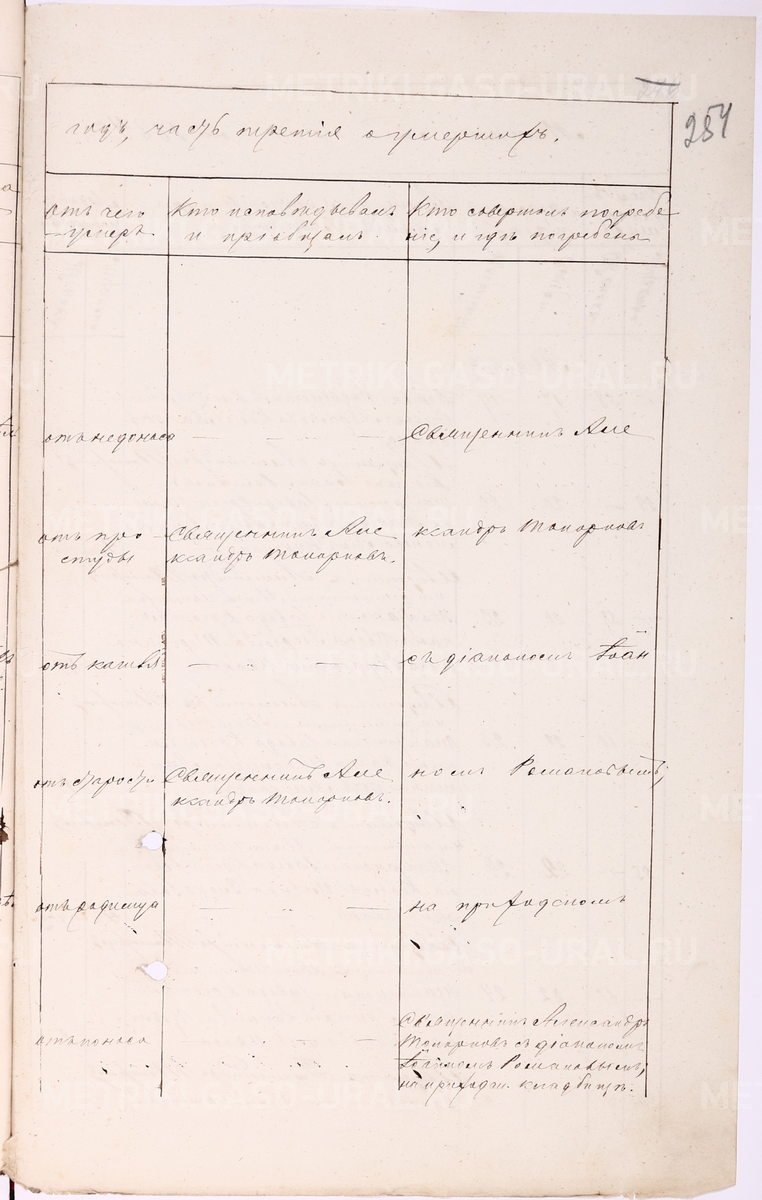 254
годъ, часть третія о умершихъ.
отъ чего
умеръ
Кто исповѣдывалъ
и пріобщалъ
Кто совершалъ погребе
ніе, и гдѣ погребены
отъ недоноса
Священникъ Але
отъ про
студы
Священникъ Але
ксандръ Топорковъ.
ксандръ Топорковъ
отъ кашля
съ діакономъ Іоан
отъ старости
Священникъ Але
ксандръ Топорковъ.
номъ Романовымъ;
отъ родимца
на приходскомъ
отъ поноса
Священникъ Александръ
Топорковъ съ діакономъ
Іоанномъ Романовымъ,
на приходск. кладбищѣ.
METRIKI.GASO-URAL.RU
METRIKI.GASO-URAL.RU
METRIKI.GASO-URAL.RU
METRIKI.GASO-URAL.RU
METRIKI.GASO-URAL.RU